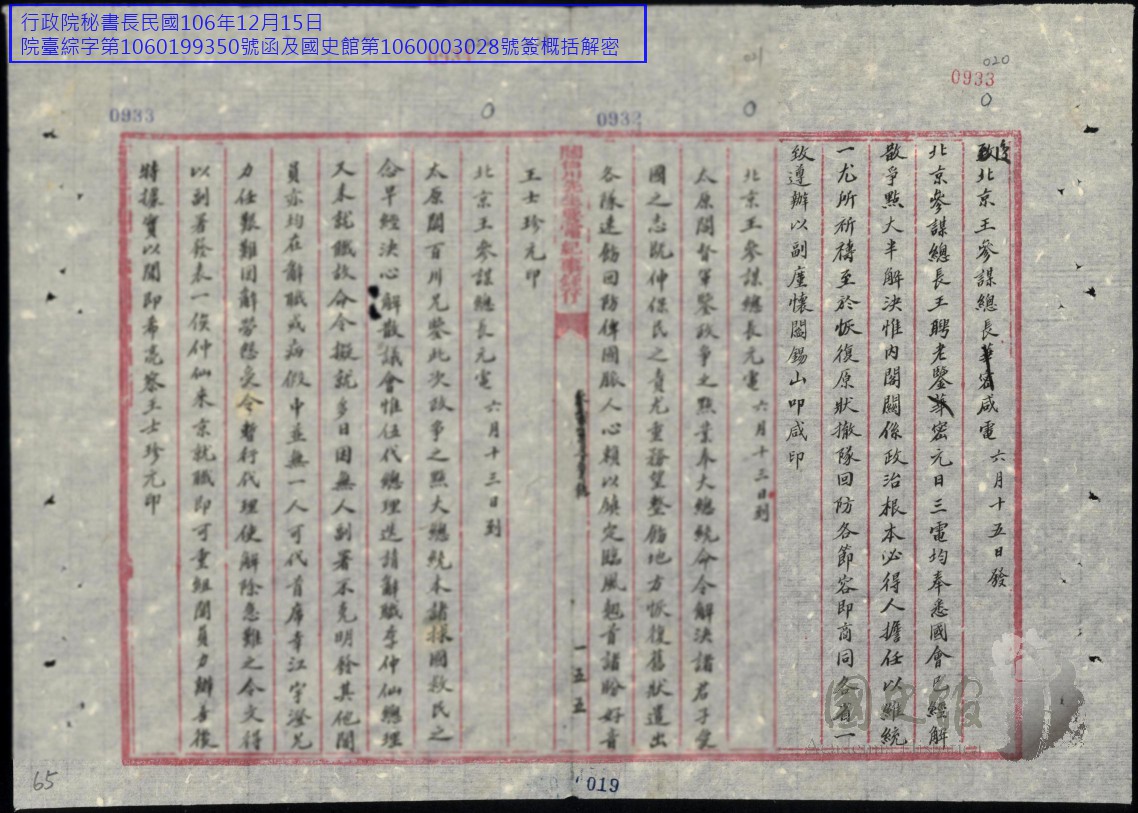 行政院秘書長民國106年12月15日
院臺綜字第1060199350號函及國史館第1060003028號簽概括解密
021
020
0933
0933
0932
復北京王參謀總長咸電 六月十五日發
北京參謀總長王聘老鑒華密元日三電均奉悉國會已經解
散爭點大半解決惟內閣關係政治根本必得人擔任以維統
一尤所祈禱至於恢復原狀撤隊回防各節容即商同各省一
致遵辦以副廑懷閻錫山叩咸印
北京王參謀總長元電 六月十三日到
太原閻督軍鑒政爭之點業奉大總統命令解決諸君子愛
國之志既伸保民之責尤重務望整飭地方恢復舊狀遣出
各隊速飭回防俾國脈人心賴以鎮定臨風翹首諸盼好音
一五五
王士珍元印
北京王參謀總長元電 六月十三日到
太原閻百川兄鑒此次政爭之點大總統本諸採國救民之
念早經決心解散議會惟伍代總理迭請辭職李仲仙總理
又未就職故命令擬就多日因無人副署不克明發其他閣
員亦均在辭職或病假中並無一人可代首席幸江宇澄兄
力任艱難因辭勞怨受令暫行代理使解除急難之令文得
以副署發表一俟仲仙來京就職即可重組閣員力辦善後
特據實以聞即希亮察王士珍元印
國史館
Academia Historica
65
019